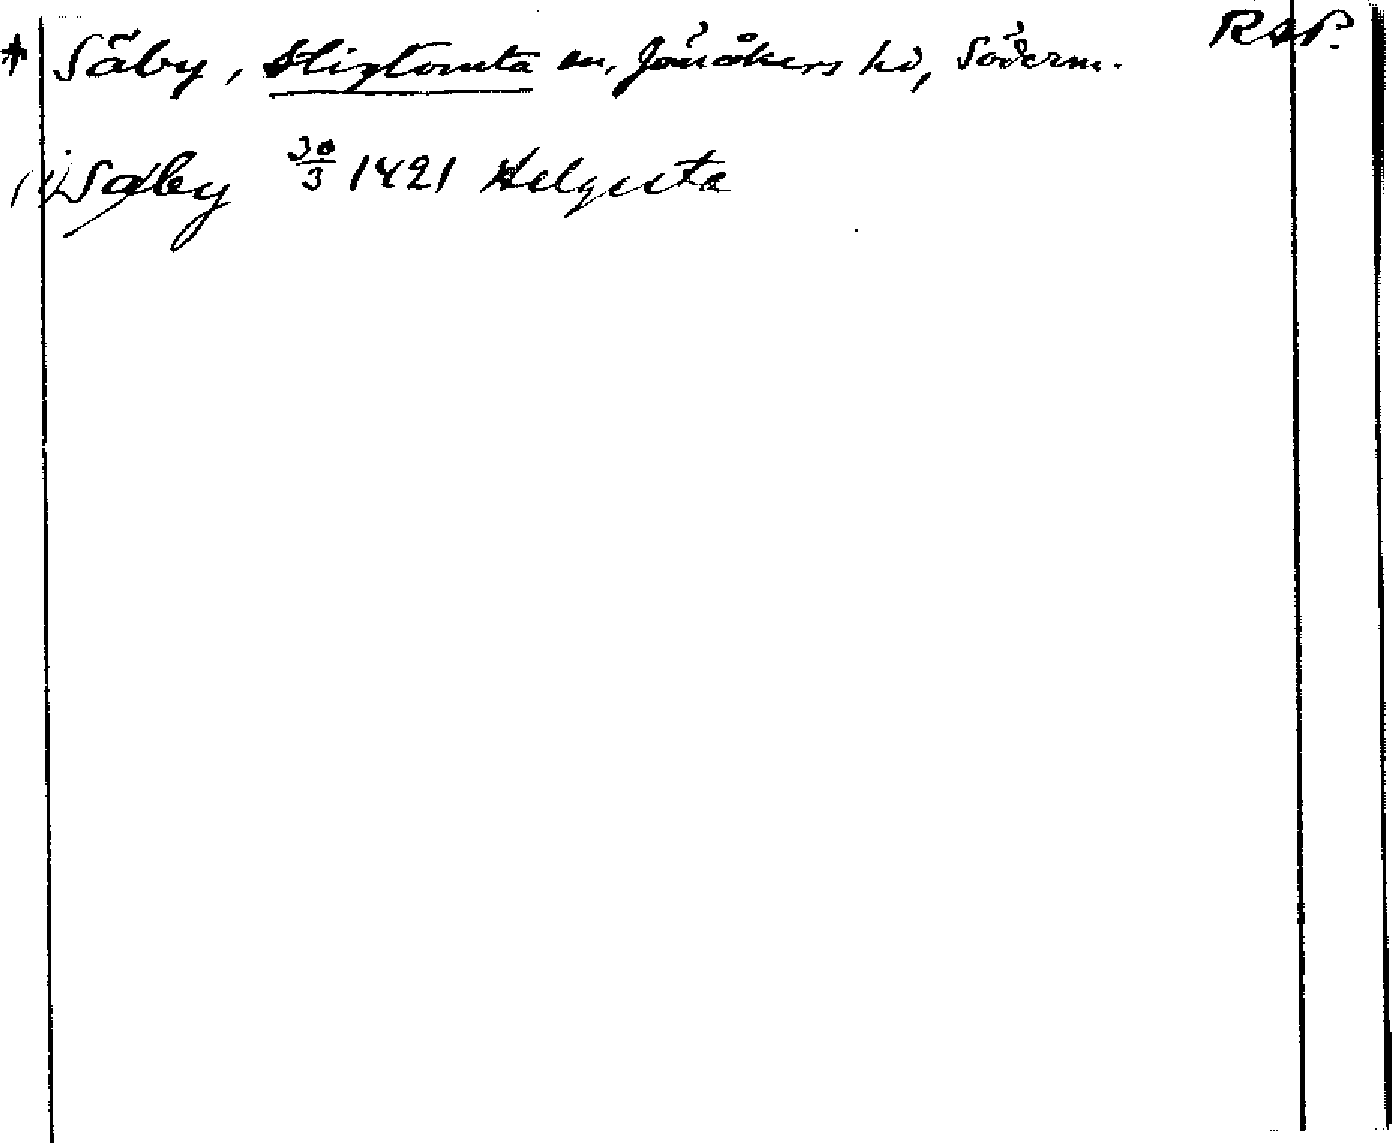 * Säby, Stigtomta sn, Jönåkers hd, Söderm. RAP.
(i) Säby 30/3 1421 Helgesta